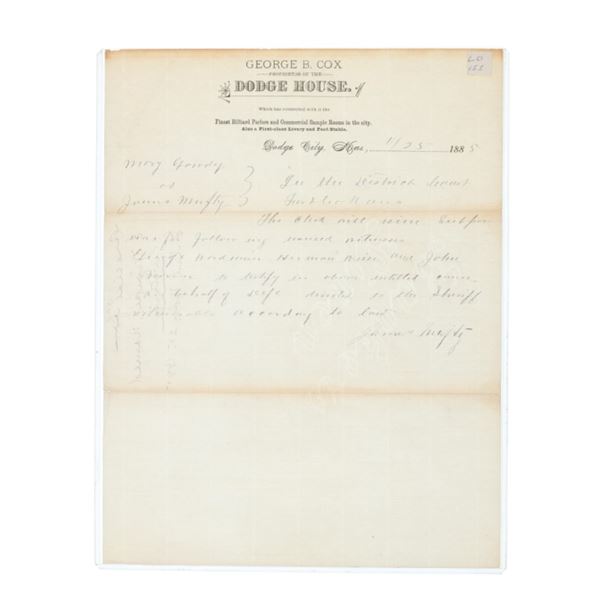 GEORGE B. COX
PROPRIETOR OF THE
DODGE HOUSE.
Which has connected with it the
Finest Billiard Parlors and Commercial Sample Rooms in the city.
Also a First-class Livery and Feed Stable.
Dodge City, Kas, 11/25 1885
LD
Mary Gandy
vs
James Mufty
In the District Court
The Clerk will issue
for following named witness
George Herman and John
to testify in above entitled cause
behalf of deft directed to the Sheriff
returnable according to law
James Mufty